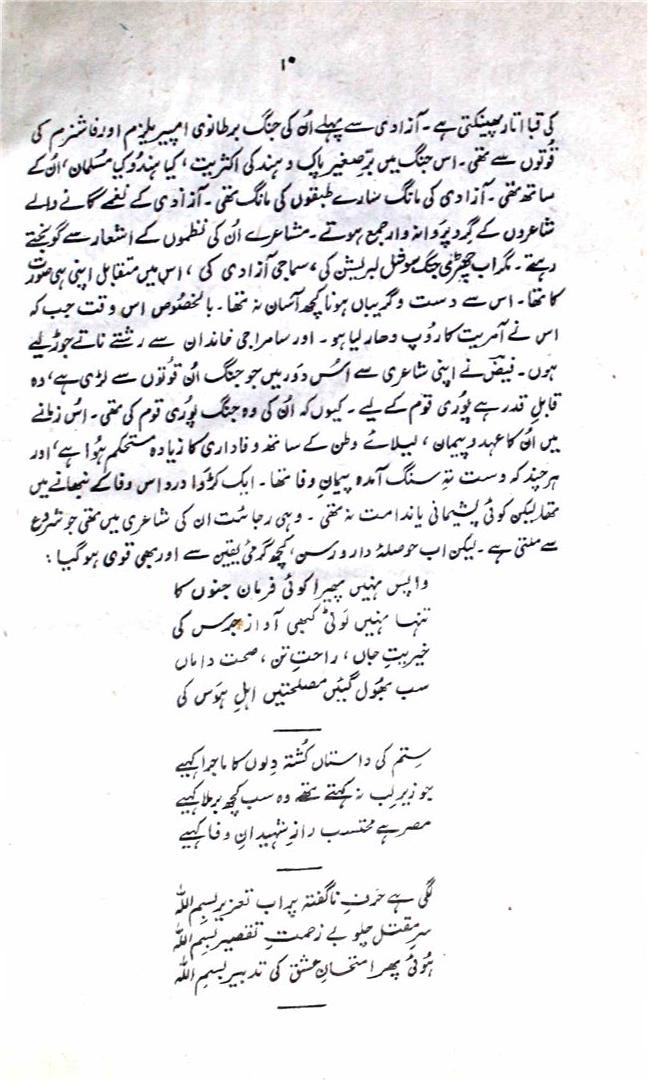 ۱۰
کی قبا اتار پھینکتی ہے۔ آزادی سے پہلے اُن کی جنگ برطانوی امپیریلزم اور فاشزم کی
قوتوں سے تھی۔ اس جنگ میں برِّصغیر پاک و ہند کی اکثریت، کیا ہندو کیا مسلمان، اُن کے
ساتھ تھی۔ آزادی کی مانگ سارے طبقوں کی مانگ تھی۔ آزادی کے نغمے گانے والے
شاعروں کے گرد پروانہ وار جمع ہوتے۔ مشاعرے اُن کی نظموں کے اشعار سے گونجتے
رہتے۔ مگر اب چھڑی جنگ سوشل لبریشن کی، سماجی آزادی کی، اس میں متقابل اپنی ہی صورت
کا تھا۔ اس سے دست و گریباں ہونا کچھ آسان نہ تھا۔ بالخصوص اس وقت جب کہ
اس نے آمریت کا روپ دھار لیا ہو۔ اور سامراجی خاندان سے رشتے ناتے جوڑ لیے
ہوں۔ فیضؔ نے اپنی شاعری سے اُس دور میں جو جنگ اُن قوتوں سے لڑی ہے، وہ
قابلِ قدر ہے پوری قوم کے لیے۔ کیوں کہ اُن کی وہ جنگ پوری قوم کی تھی۔ اس زمانے
میں اُن کا عہد و پیمان، لیلائے وطن کے ساتھ وفاداری کا زیادہ مستحکم ہوا ہے، اور
ہر چند کہ دست تہِ سنگ آمدہ پیمانِ وفا تھا۔ ایک کڑوا درد اس وفا کے نبھانے میں
تھا لیکن کوئی پشیمانی یا ندامت نہ تھی۔ وہی رجائیت ان کی شاعری میں تھی جو شروع
سے ملتی ہے۔ لیکن اب حوصلۂ دار و رسن، کچھ گرمئ یقین سے اور بھی قوی ہو گیا:
واپس نہیں پھیرا کوئی فرمان جنوں کا
تنہا نہیں لوٹی کبھی آواز جرس کی
خیریتِ جاں، راحتِ تن، صحت داماں
سب بھول گئیں مصلحتیں اہلِ ہوس کی
ستم کی داستاں کشتہ دلوں کا ماجرا کہیے
جو زیر لب نہ کہتے تھے وہ سب کچھ برملا کہیے
مصر ہے محتسب رازِ شہیدانِ وفا کہیے
لگی ہے حرفِ ناگفتہ پر اب تعزیر بسم اللہ
سرِ مقتل چلو بے زحمتِ تقصیر بسم اللہ
ہوئی پھر امتحانِ عشق کی تدبیر بسم اللہ